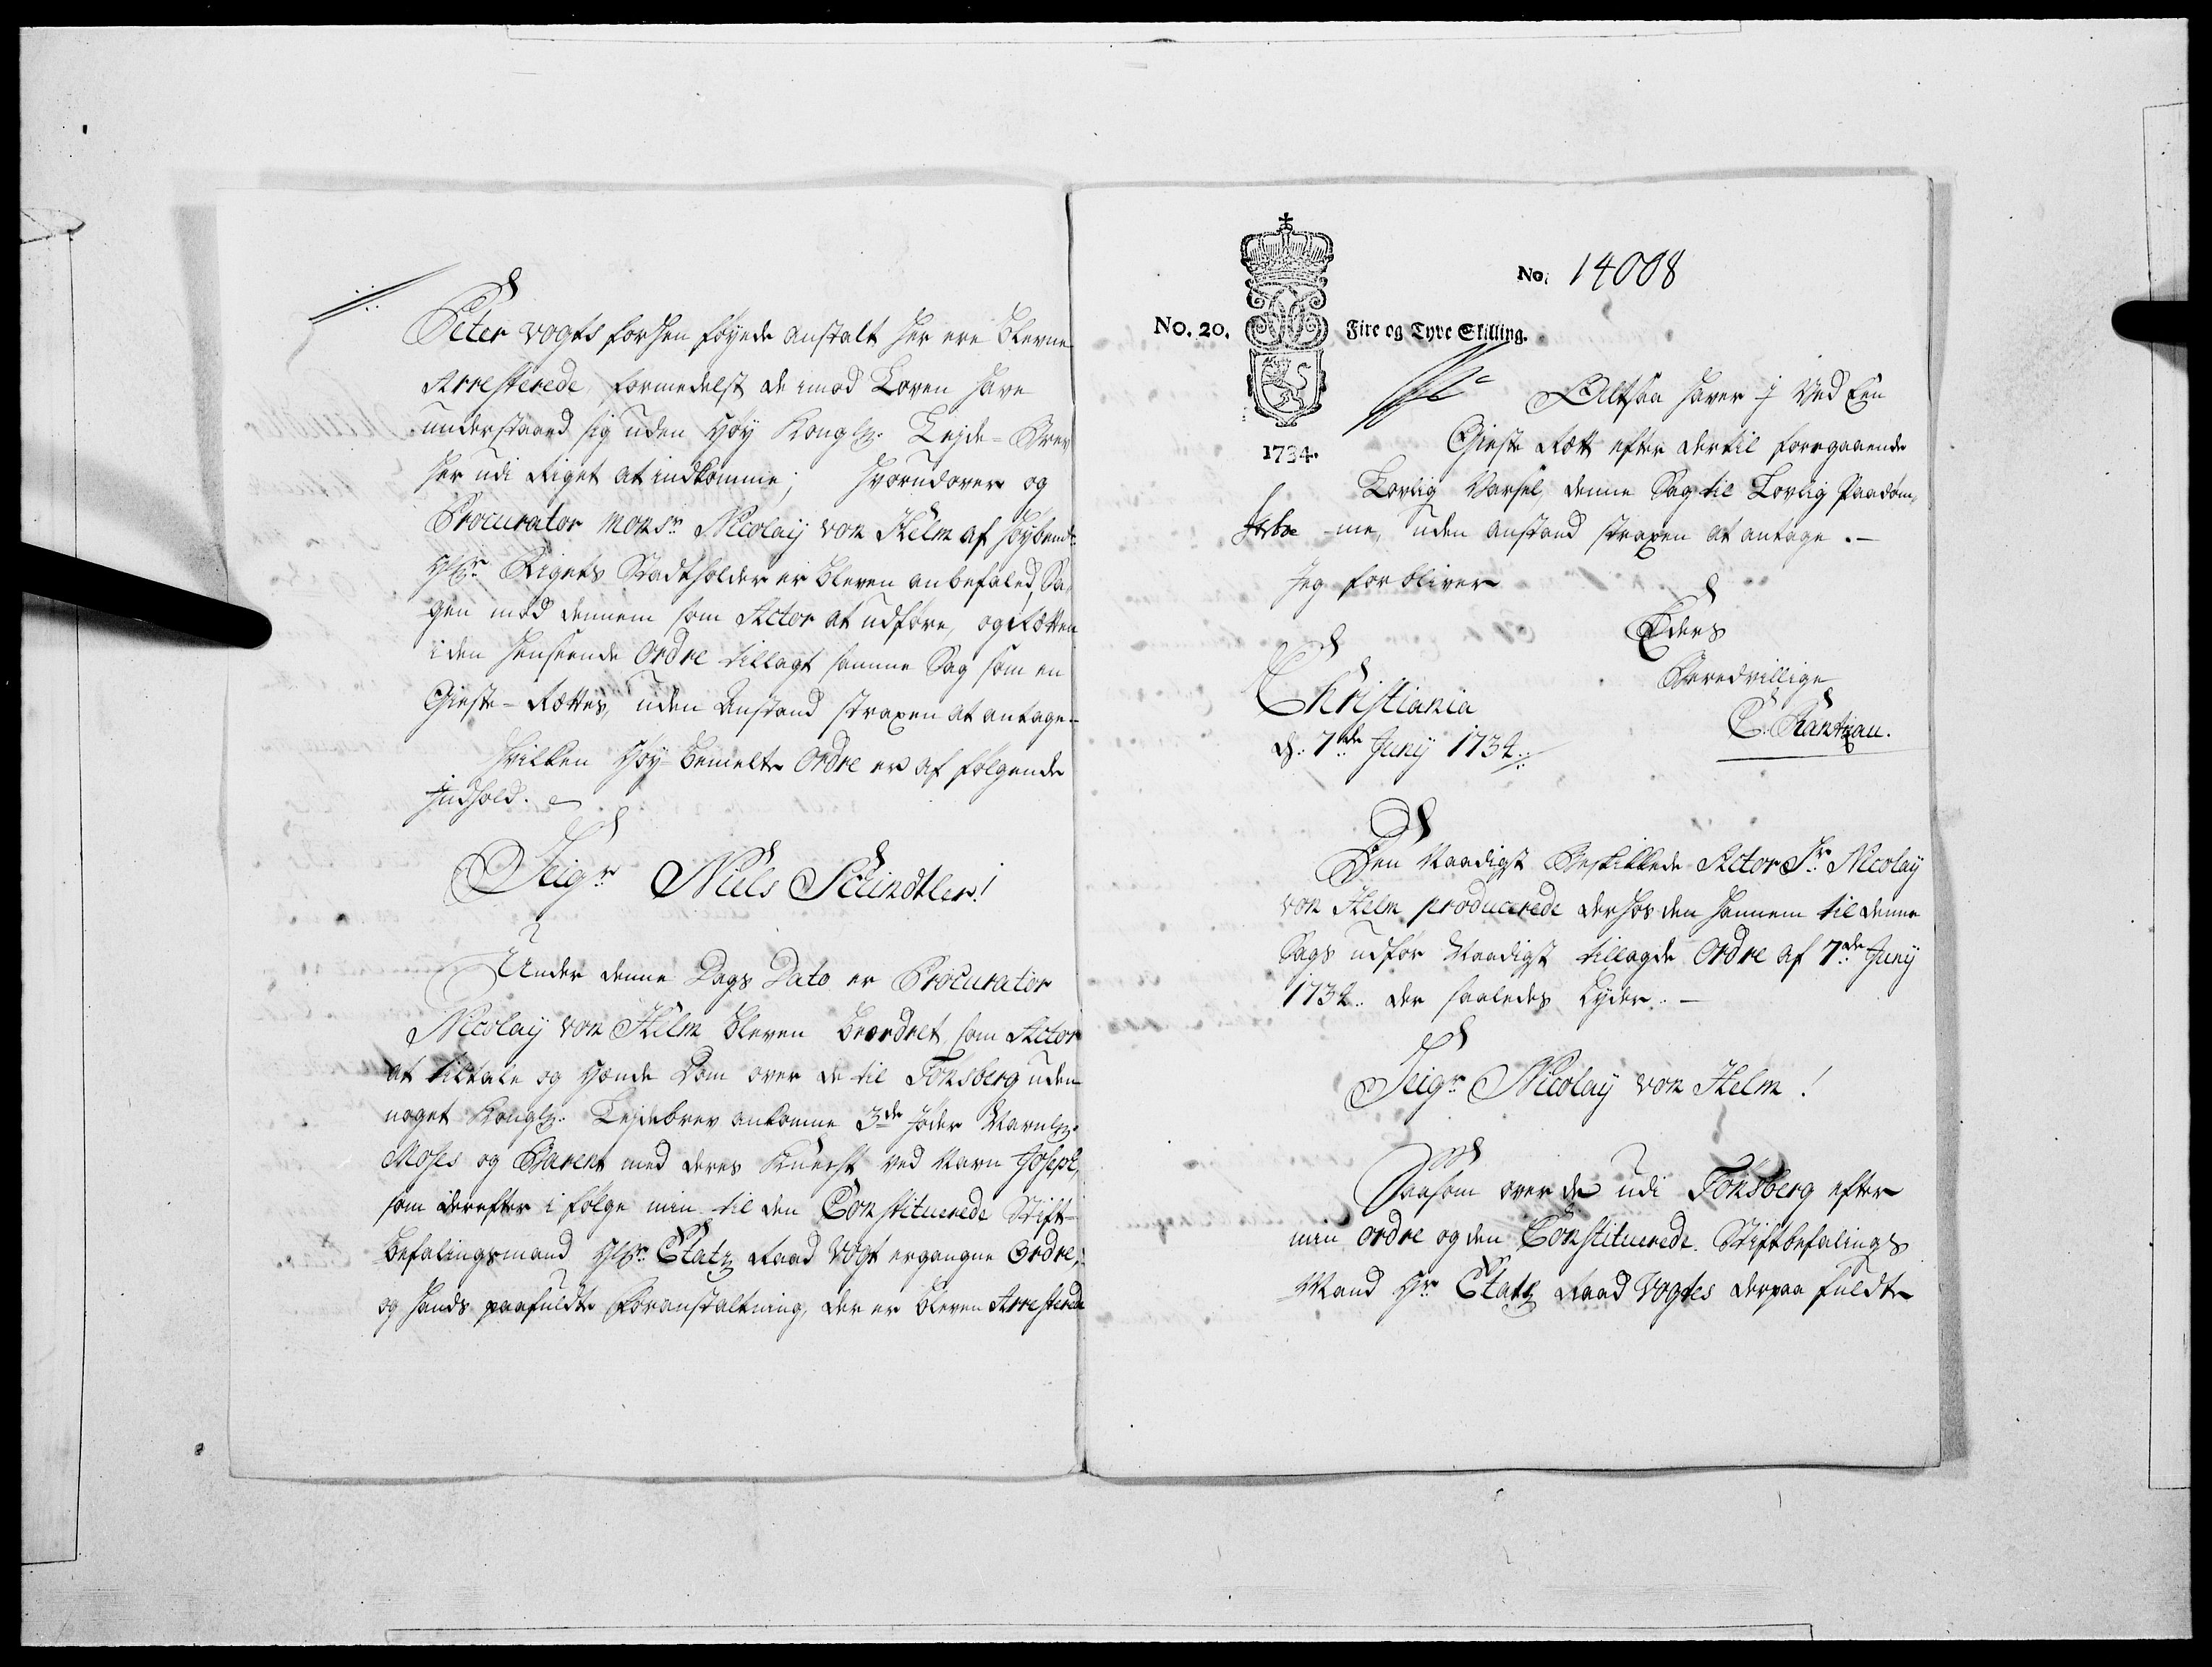 Peter Vogts forhen føyede anstalt her ere blevne
Arresterede, formedelst de imod Loven have
understaaed sig uden Høy Kongl: Lejde-Brev
her udi Riget at indkomme; Hvorudover og
Procurator Monsr Nicolaÿ von Helm af Høybemte
Hr Rigets Stadtholder er bleven anbefaled, Sa,
gen mod dennem som Actor at udføre, og Rætten
i den henseende Ordre tillagt samme Sag som en
Gieste-Rættes, uden Anstand straxen at antage.
Hvilken Høy-bemelte Ordre er af følgende
Indhold.
Seigr Niels Scheindtler!
Under denne Dags Dato er Procurator
Nicolaÿ von Helm bleven beordret, som Actor
at tiltale og hænde Dom over de til Tonsberg uden
noget Kongl: Lejdebrev ankomne 3de Jøder Navnl:
Moses og Barent med deres Knecht ved Navn Joseph,
som derefter i følge min til den Constituerede Stift-
befalingsmand Hr: Etatz Raad Vogt ergangne Ordre,
og hands paafuldte Foranstaltning, der er bleven Arresterede
No. 14008
No. 20. Fire og Tyve Skilling.
1734.
Altsaa haver I Ved Een
Gieste Rætt efter dertil foregaaende
Lovlig Varsel, denne Sag til Lovlig Paadøm,
-me, uden anstand straxen at antage.-
Jeg forbliver
Eders
Beredvillige
Christiania
C: Rantzau.
d: 7de Junÿ 1734.
Den Naadigst Beskikkede Actor Sr: Nicolaÿ
von Helm producerede derhos den hannem til denne
Sags udfør Naadigst tillagde Ordre af 7de Junÿ
1734. der saaledes lyder.-
Seigr Nicolaÿ von Helm!
Saasom over de udi Tonsberg efter
min ordre og den Constituerede. Stiftbefalings
Mand Hr Etatz Raad Vogtes derpaa fuldte